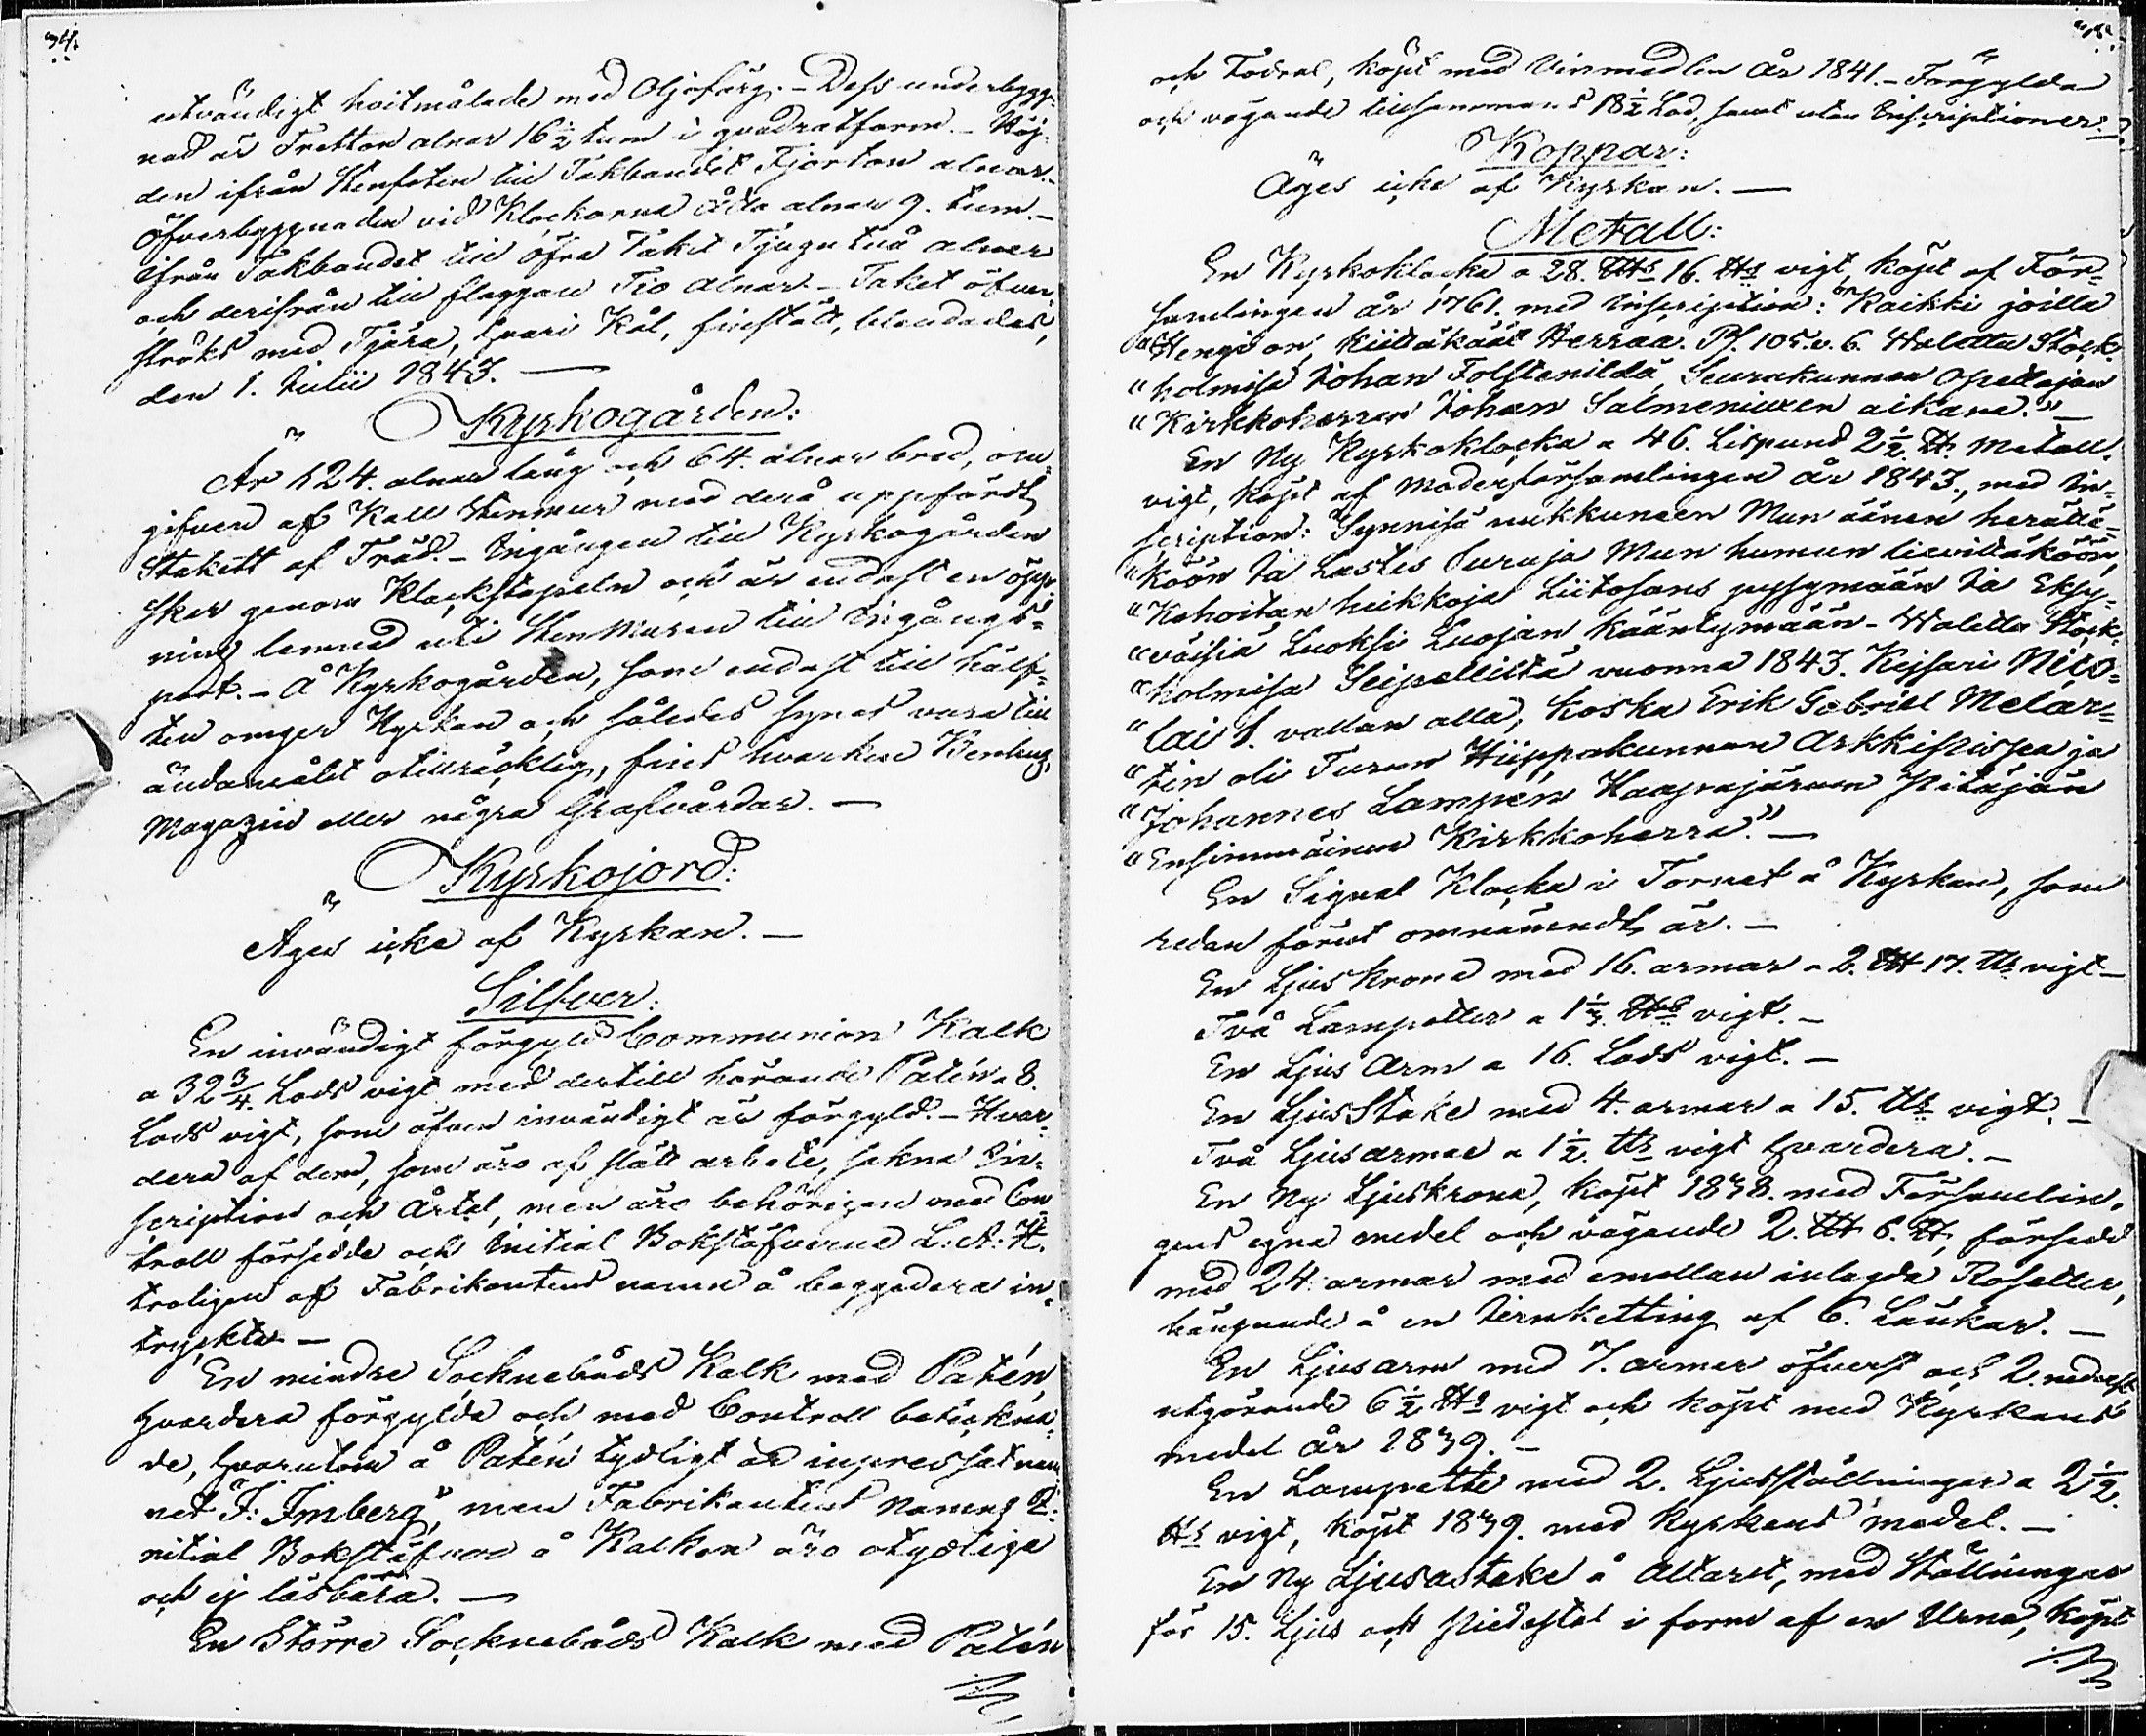 34.
utvändigt hvitmålade med Oljefärg. – Dess underbygg-
nad är Tretton alnar 16½ tum i qvadratform. – Höj-
den ifrån Stenfoten till Takbandet Fjorton alnar. –
Öfverbyggnaden vid Klockorna åtta alnar 9. tum. –
Ifrån Takbandet till öfra Taket Tjugutvå alnar
och derifrån till flaggan Tio alnar. – Taket öfver-
ströks med Tjära, hvari Kol, finstött, blandades,
den 1. Julii 1843. —
Kyrkogården:
Är 124. alnar lång och 64. alnar bred, om-
gifven af Kall Stenmur med derå uppfördt
Stakett af Träd. – Ingången till Kyrkogården
sker genom Klockstapeln och är endast en öpp-
ning lemnad uti Stenmuren till Ingångs-
port. – Å Kyrkogården, som endast till hälf-
ten omger Kyrkan och således synes vara till
ändamålet otillräcklig, fins hvarken Benhus,
Magazin eller några Grafvårdar. —
Kyrkojord:
Äges icke af Kyrkan. —
Silfver:
En invändigt förgyld Communion Kalk
a 32¾. Lods vigt med dertill hörande Patén a 8.
Lods vigt, som äfven invändigt är förgyld. – Hvar-
dera af dem, som äro af slätt arbete, sakna In-
scription och Årtal, men äro behörigen med Con-
troll försedde och Initial Bokstäfverne L: A: H.
troligen af Fabrikantens namn å beggedera in-
tryckte —
En mindre Socknebåds Kalk med Patén,
hvardera förgylda och med Controll beteckna-
de, hvarutom å Patén tydligt är inpressat nam-
net "F: Imberg", men Fabrikantens Namns I-
nitial Bokstäfver å Kalken äro otydlige
och ej läsbara. —
En Större Socknebåds Kalk med Patén
och Fodral, köpt med Vinmedlen År 1841. – Förgylda
och vägande tillsammans 18½ Lod, samt utan Inscriptioner.
Koppar:
Äges icke af Kyrkan. —
Metall:
En Kyrkoklocka a 28. 16. vigt, köpt af För-
samlingen år 1761. med Inscription: "Kaikki joilla
"Hengi on, kiittäkäät Herraa. Ps. 105. v. 6. Walettu Stock-
"holmisa Johan Folstenildä, Seurakunnan Opettajan
"Kirkkoherran Johan Salmeniuxen aikana." —
En Ny Kyrkoklocka a 46. Lispund 2½. Metall.
vigt, köpt af Moderförsamlingen år 1843., med In-
scription: Synnisä nukkuneen Mun äänen herättä-
"köön Ja Lastes Suruja Mun humun lievittäköön,
"Kehoitan heikkoja Liitosans pysymään Ja Eksy-
"väisiä Luoksi Luojan kääntymään – Walettu Stock-
"holmisa vuonna 1843. Keisari Nico-
"lai I. vallan alla, koska Erik Gabriel Melar-
"tin oli Turun Hiippakunnan Arkkipispa ja
"Johannes Lampén Haapajärven Pitäjän
"Ensimmäinen Kirkkoherra." —
En Signal Klocka i Tornet å Kyrkan, som
redan förut omnämndt är. —
En Ljus Krona med 16. armar a 2. 17. vigt —
Två Lampetter a vigt. —
En Ljus Arm a 16. Lods vigt. —
En LjusStake med 4. armar a 15. vigt. —
Två Ljusarmar a 1½. vigt hvardera. —
En Ny Ljuskrona, köpt 1838. med Församlin-
gens egna medel och vägande 2. 6. försedd
med 24. armar med emellan inlagda Rosetter,
hängande å en Jernketting af 6. Länkar. —
En Ljusarm med 7. armar öfverst och 2. nederst
utgörande 6½ vigt och köpt med Kyrkans
medel år 1839. —
En Lampette med 2. Ljusställningar a 2½.
vigt, köpt 1839. med Kyrkans medel. —
En Ny Ljusastake å Altaret, med Ställningar
för 15. Ljus och Piedestal i form af en Urna, köpt